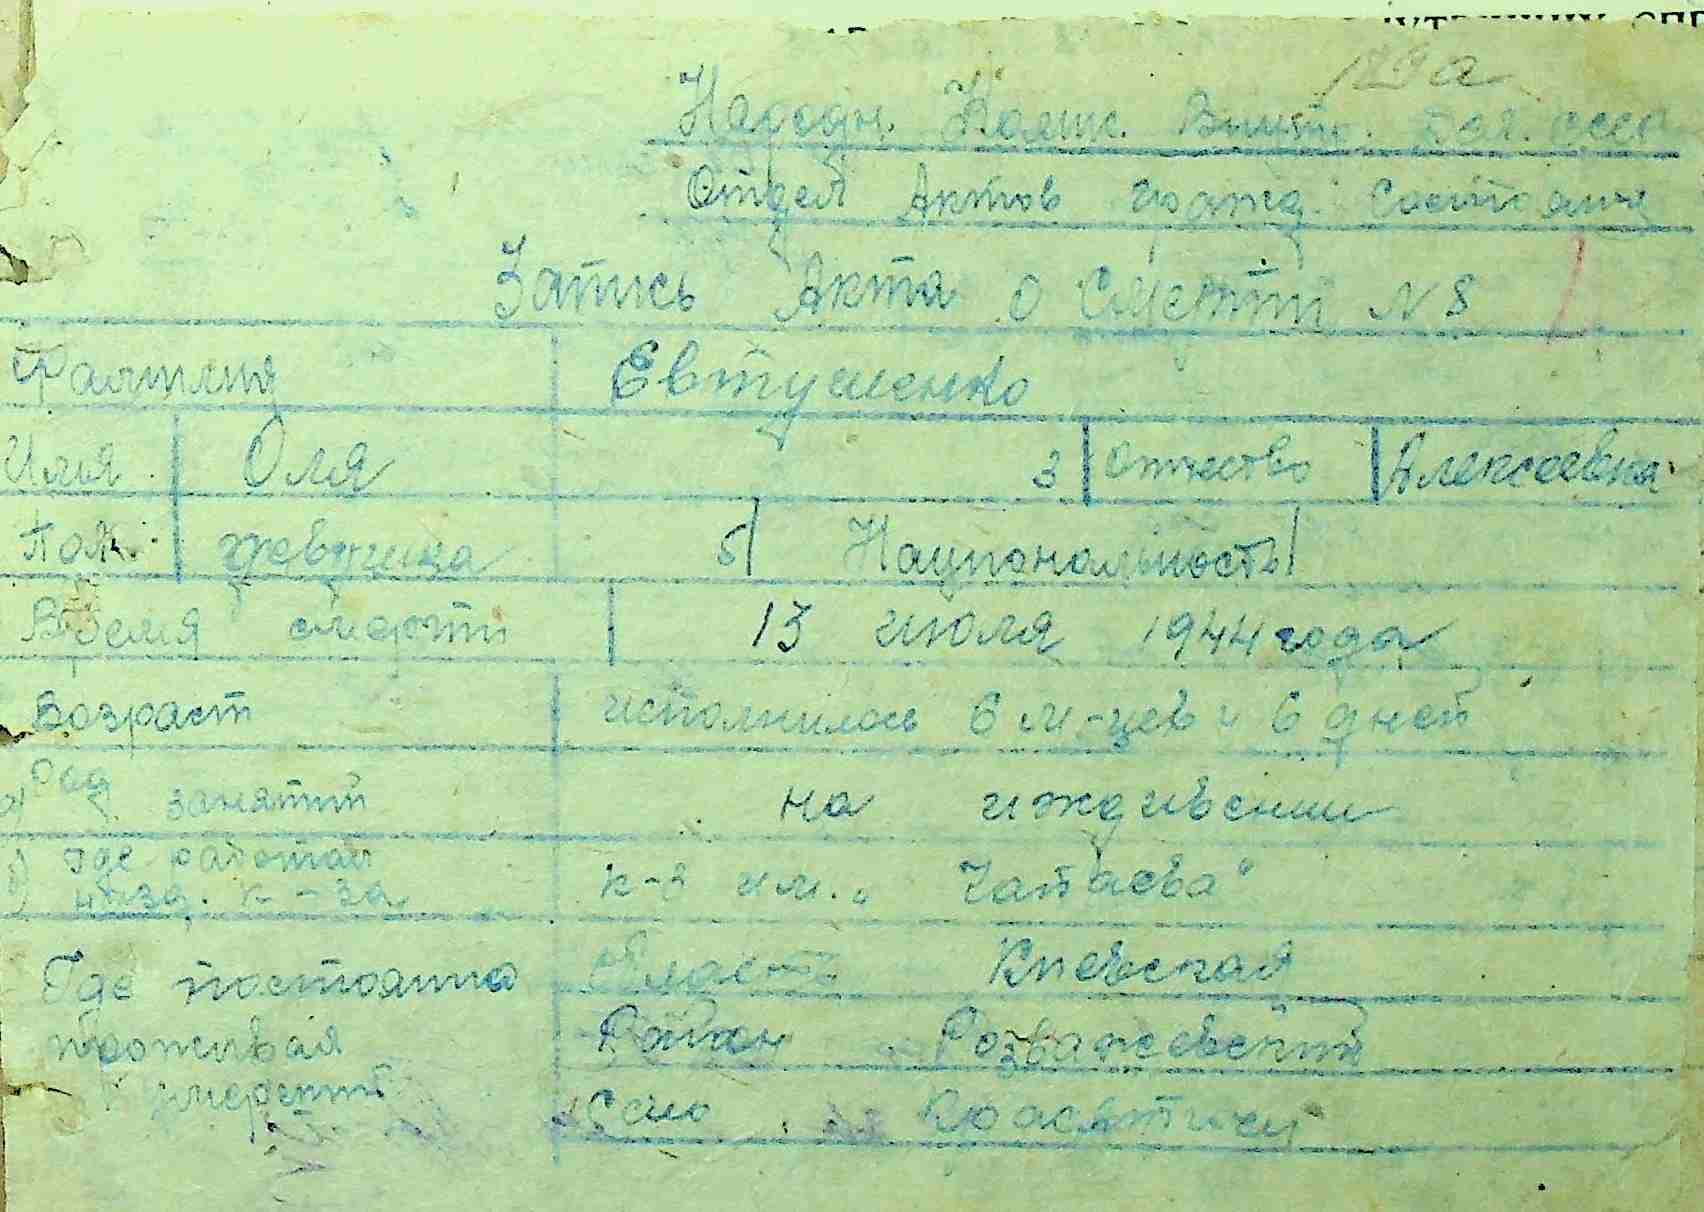 129а
Народн. Комис. Внутр. Дел. СССР
Отдел Актов Гражд. Состояния
Запись Акта о Смерти N 8
Фамилия Евтушенко
Имя Оля 3 Отчество Алексеевна
Пол девушка 5 Национальность
Время смерти 13 июля 1944 года
Возраст исполнилось 6 м-цев и 6 дней
а) Род занятий на иждивении
б) где работал назв. к-за к-з им. „Чапаева"
Где постоянно проживал умерший Область Киевская
Район Розважевский
Село Красятичи